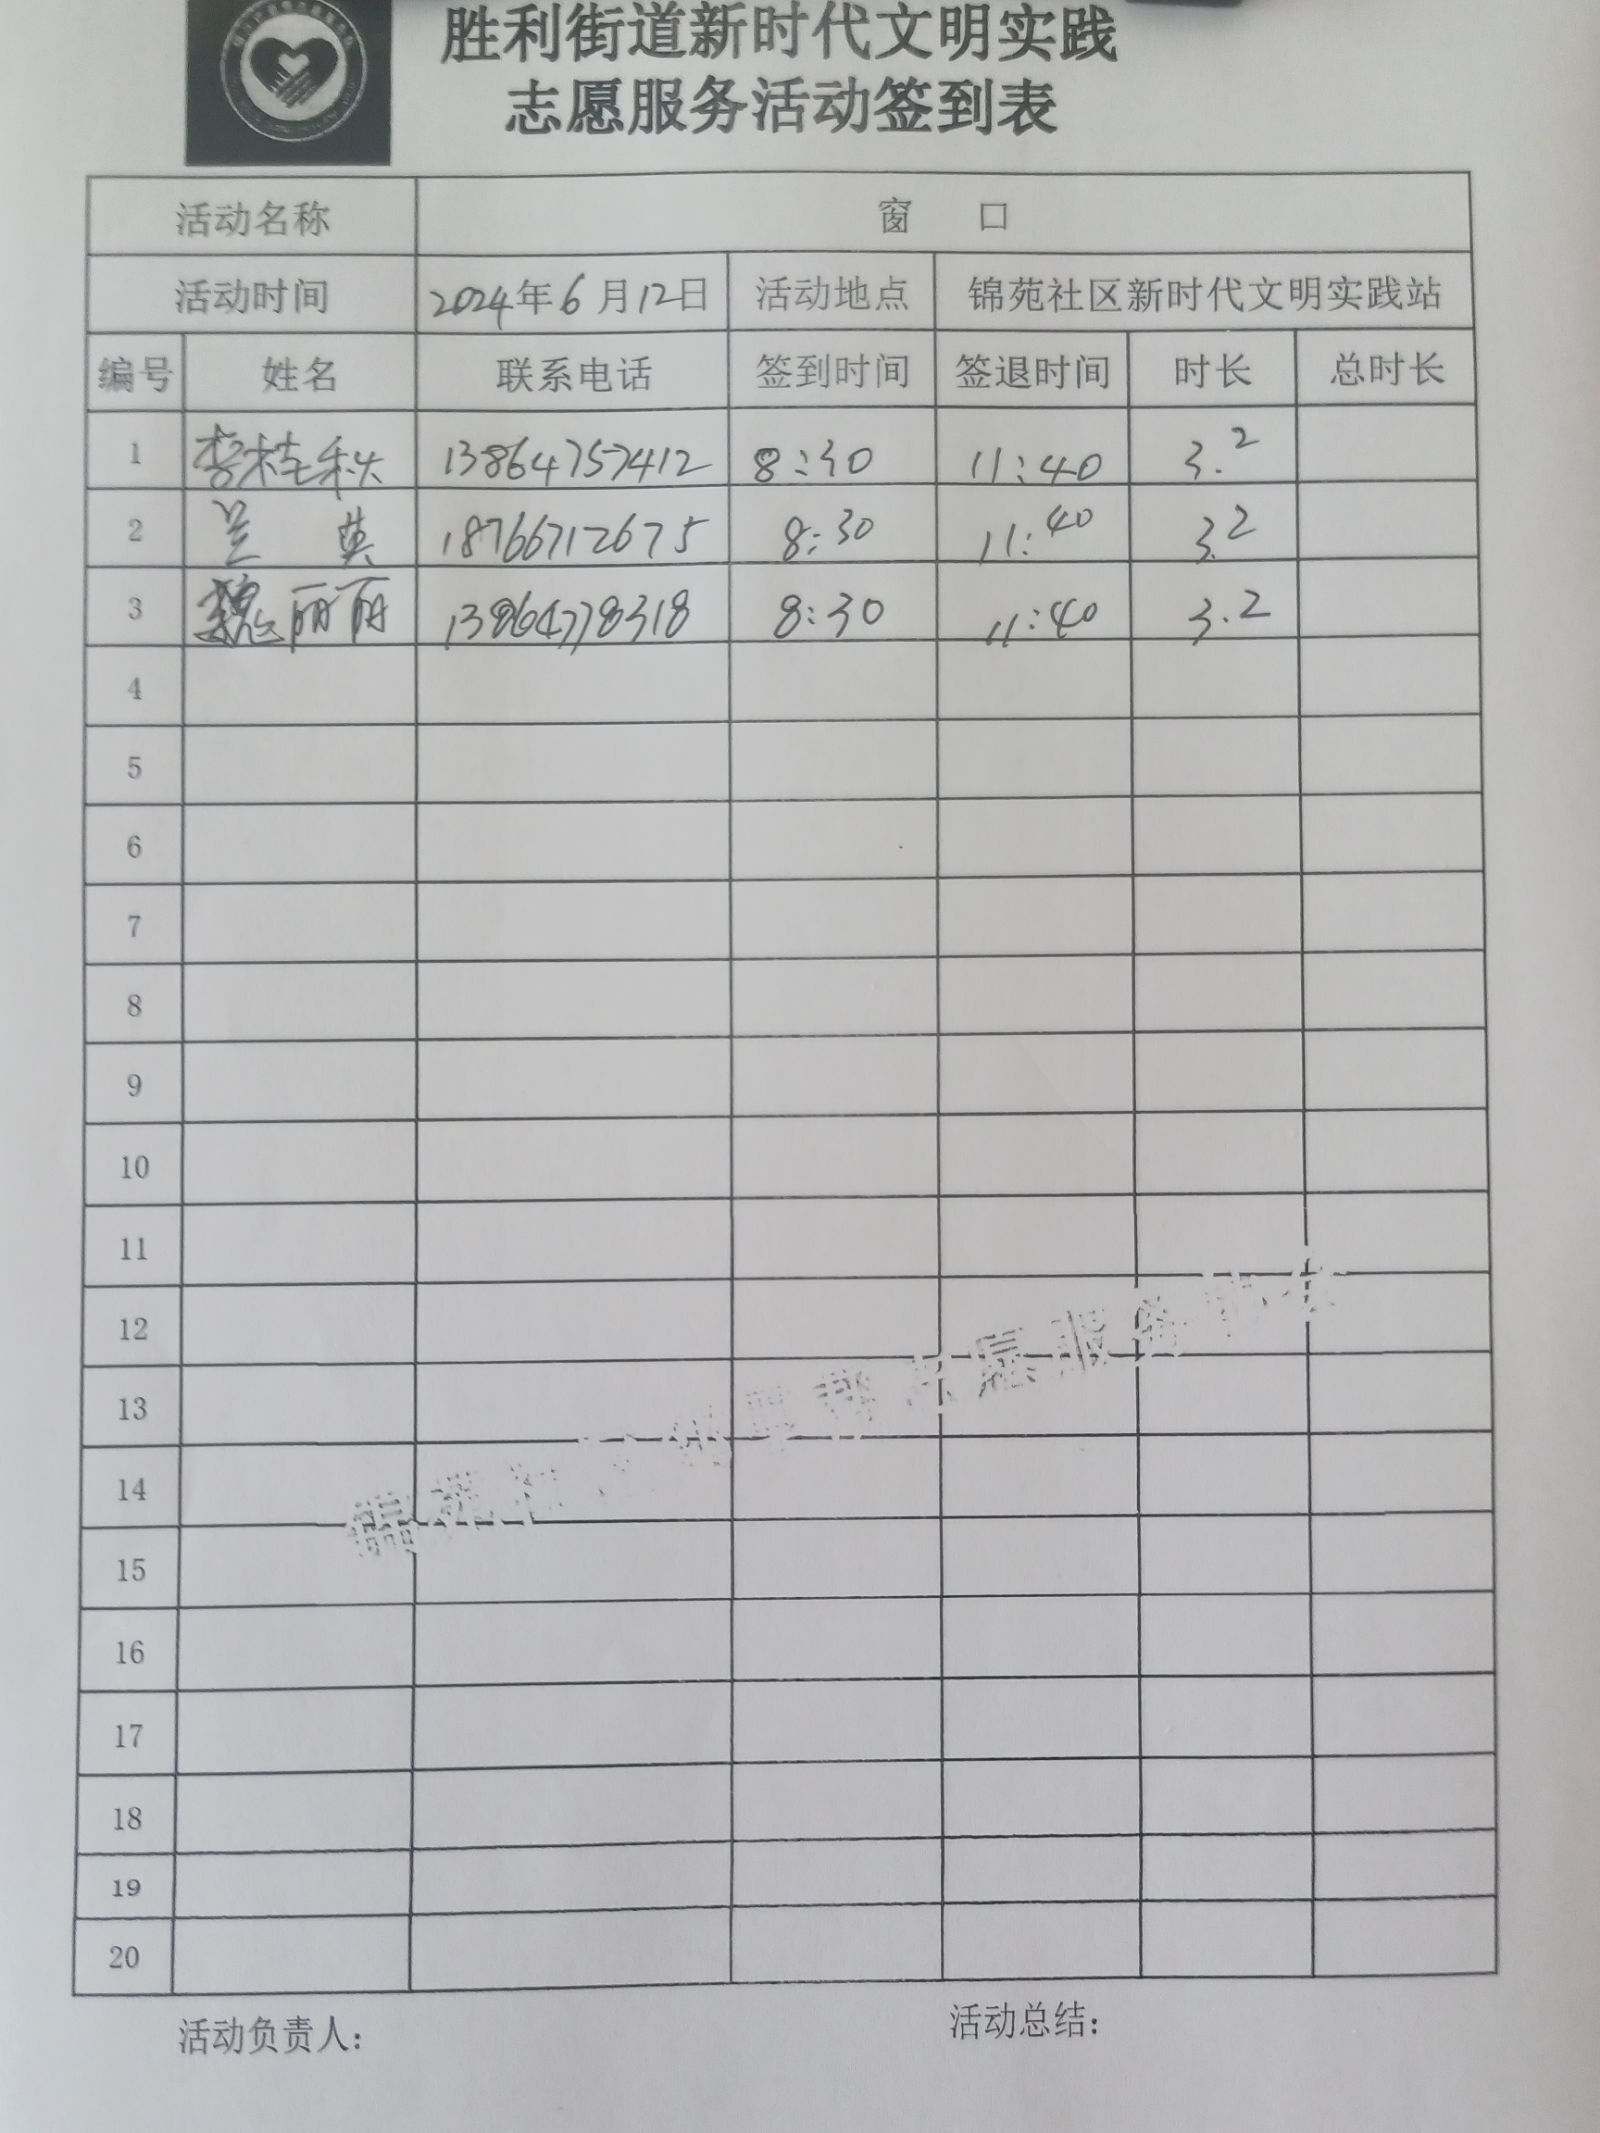 胜利街道新时代文明实践
志愿服务活动签到表
活动名称 窗 口
活动时间 2024年6月12日 活动地点 锦苑社区新时代文明实践站
编号 姓名 联系电话 签到时间 签退时间 时长 总时长
1 李桂秋 13864757412 8:30 11:40 3.2
2 兰英 18766712675 8:30 11:40 3.2
3 魏丽丽 13864778318 8:30 11:40 3.2
4
5
6
7
8
9
10
11
12
13
14
15
16
17
18
19
20
活动负责人: 活动总结: